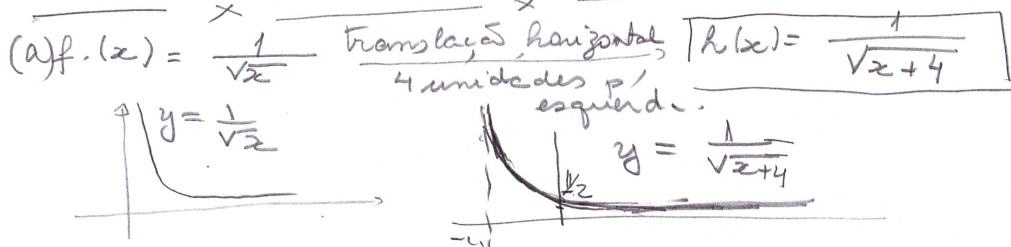 (a) f.(x) = 1/√x translação horizontal 4 unidades p/ esquerda. h(x) = 1/√x+4
y = 1/√x
y = 1/√x+4
1/2
-4